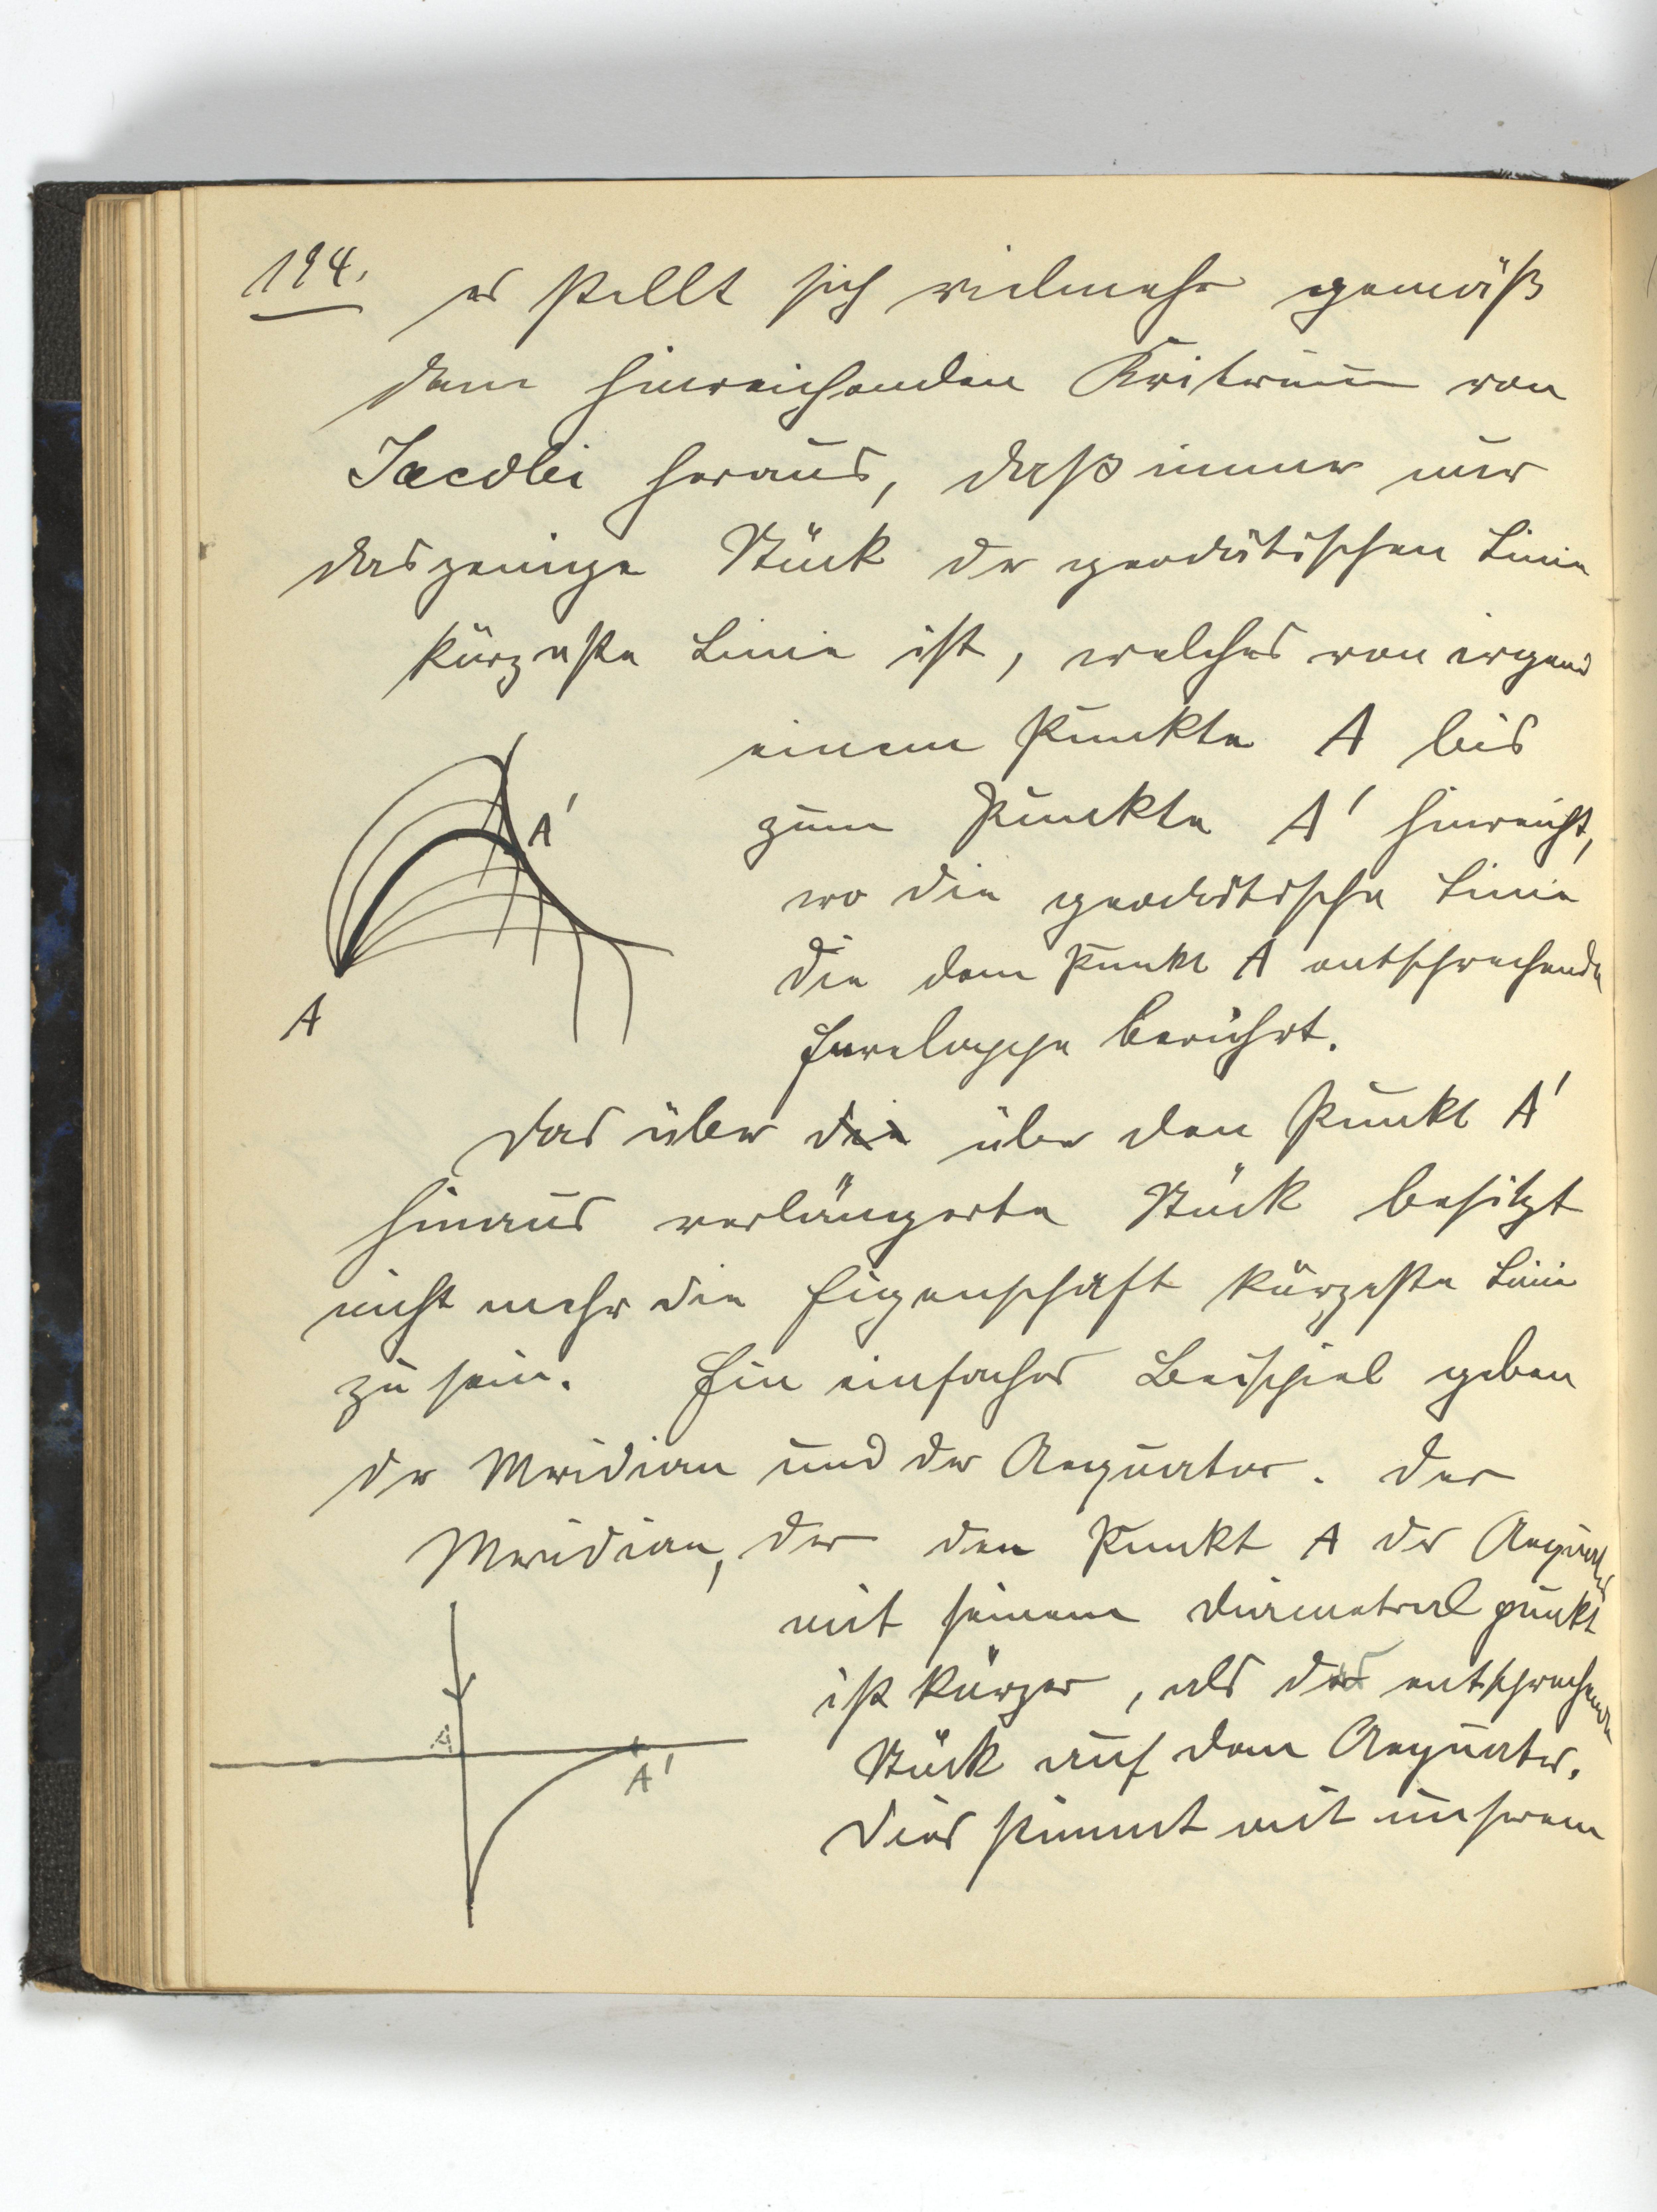 194. es stellt sich vielmehr gemäß
dem hinreichenden Kriterium von
Jacobi heraus, daß immer nur
dasjenige Stück der geodätischen Linie
kürzeste Linie ist, welches von irgend
einem Punkte A bis
zum Punkte A' hinreicht,
wo die geodätische Linie
die dem Punkt A entsprechende
Enveloppe berührt.
A'
A
Das über die über den Punkt A'
hinaus verlängerte Stück besitzt
nicht mehr die Eigenschaft kürzeste Linie
zu sein. Ein einfaches Beispiel geben
der Meridian und der Aequator. Der
Meridian, der den Punkt A des Aequators
mit seinem Diametralpunkt
ist kürzer, als das entsprechende
Stück auf dem Aequator.
Dies stimmt mit unserem
A
A'